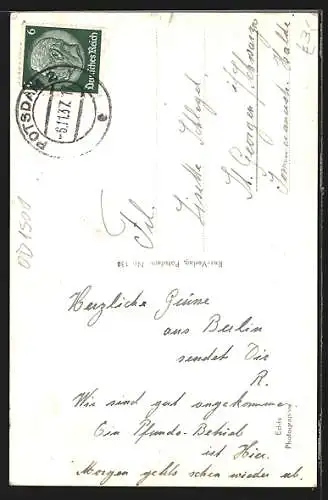 6
Deutsches Reich
POTSDAM 2
-6.11.37.
e
Frl.
Lisette Schlegel
St. Georgen i/Schwarzw.
Sommerausch. Halde.
Ree-Verlag, Potsdam. Nr. 134
Echte
Photographie
Herzliche Grüsse
aus Berlin
sendet Die
R.
Wir sind gut angekommen.
Ein Pfunds-Betrieb
ist Hier.
Morgen gehts schon wieder ab.